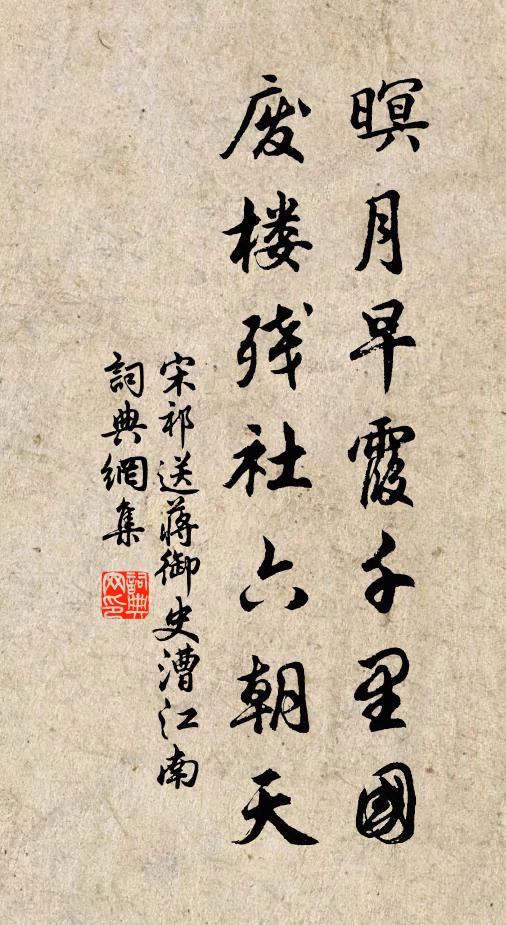 暝月早霞千里國
废楼残社六朝天
宋祁送蒋御史漕江南
詞典網集
詞典網印